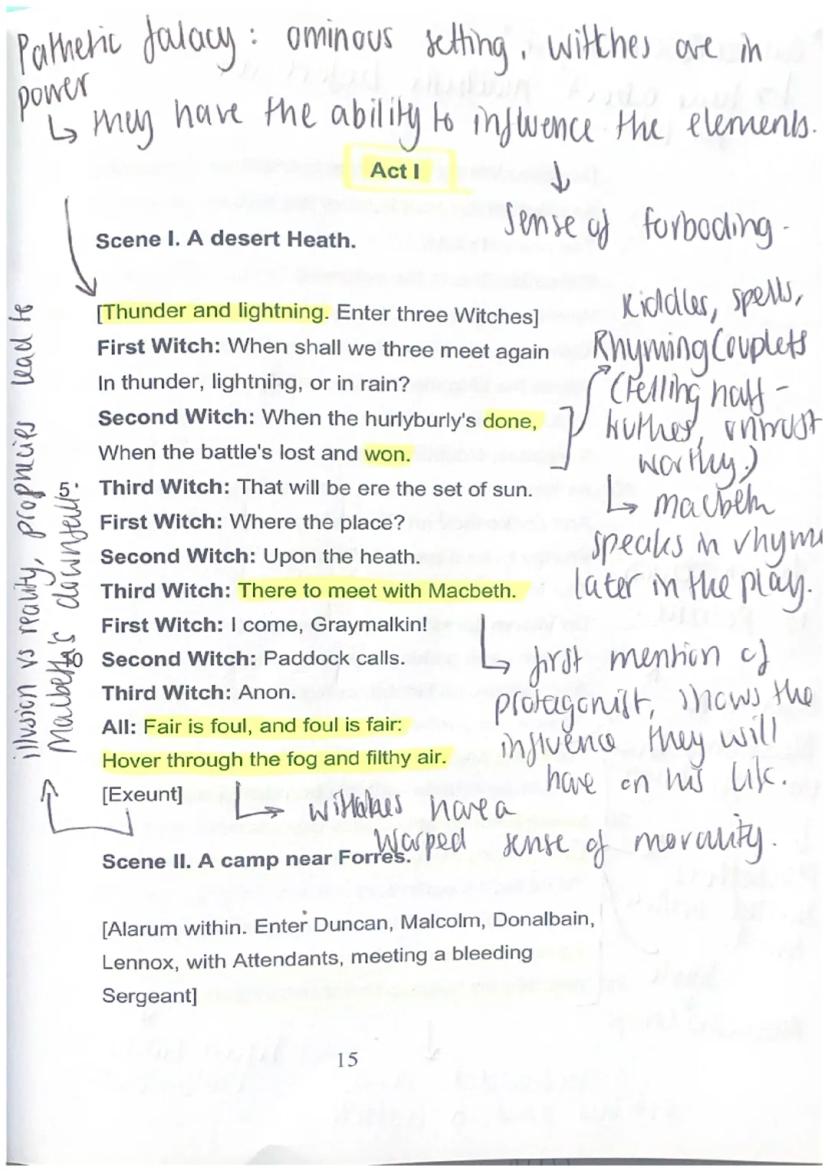 Pathetic falacy: ominous setting, witches are in
power
↳ they have the ability to influence the elements.
↓
sense of forboding.
Act I
Scene I. A desert Heath.
[Thunder and lightning. Enter three Witches]
First Witch: When shall we three meet again
In thunder, lightning, or in rain?
Second Witch: When the hurlyburly's done,
When the battle's lost and won.
5. Third Witch: That will be ere the set of sun.
First Witch: Where the place?
Second Witch: Upon the heath.
Third Witch: There to meet with Macbeth.
First Witch: I come, Graymalkin!
10 Second Witch: Paddock calls.
Third Witch: Anon.
All: Fair is foul, and foul is fair:
Hover through the fog and filthy air.
[Exeunt]
Riddles, spells,
Rhyming Couplets
(telling half-
truthes, untrust
worthy)
↳ macbeth
speaks in rhyme
later in the play.
↳ first mention of
protagonist, shows the
influence they will
have on his life.
↳ witches have a
warped sense of morality.
illusion vs reality, prophecies lead to
Macbeth's downfall.
Scene II. A camp near Forres.
[Alarum within. Enter Duncan, Malcolm, Donalbain,
Lennox, with Attendants, meeting a bleeding
Sergeant]
15